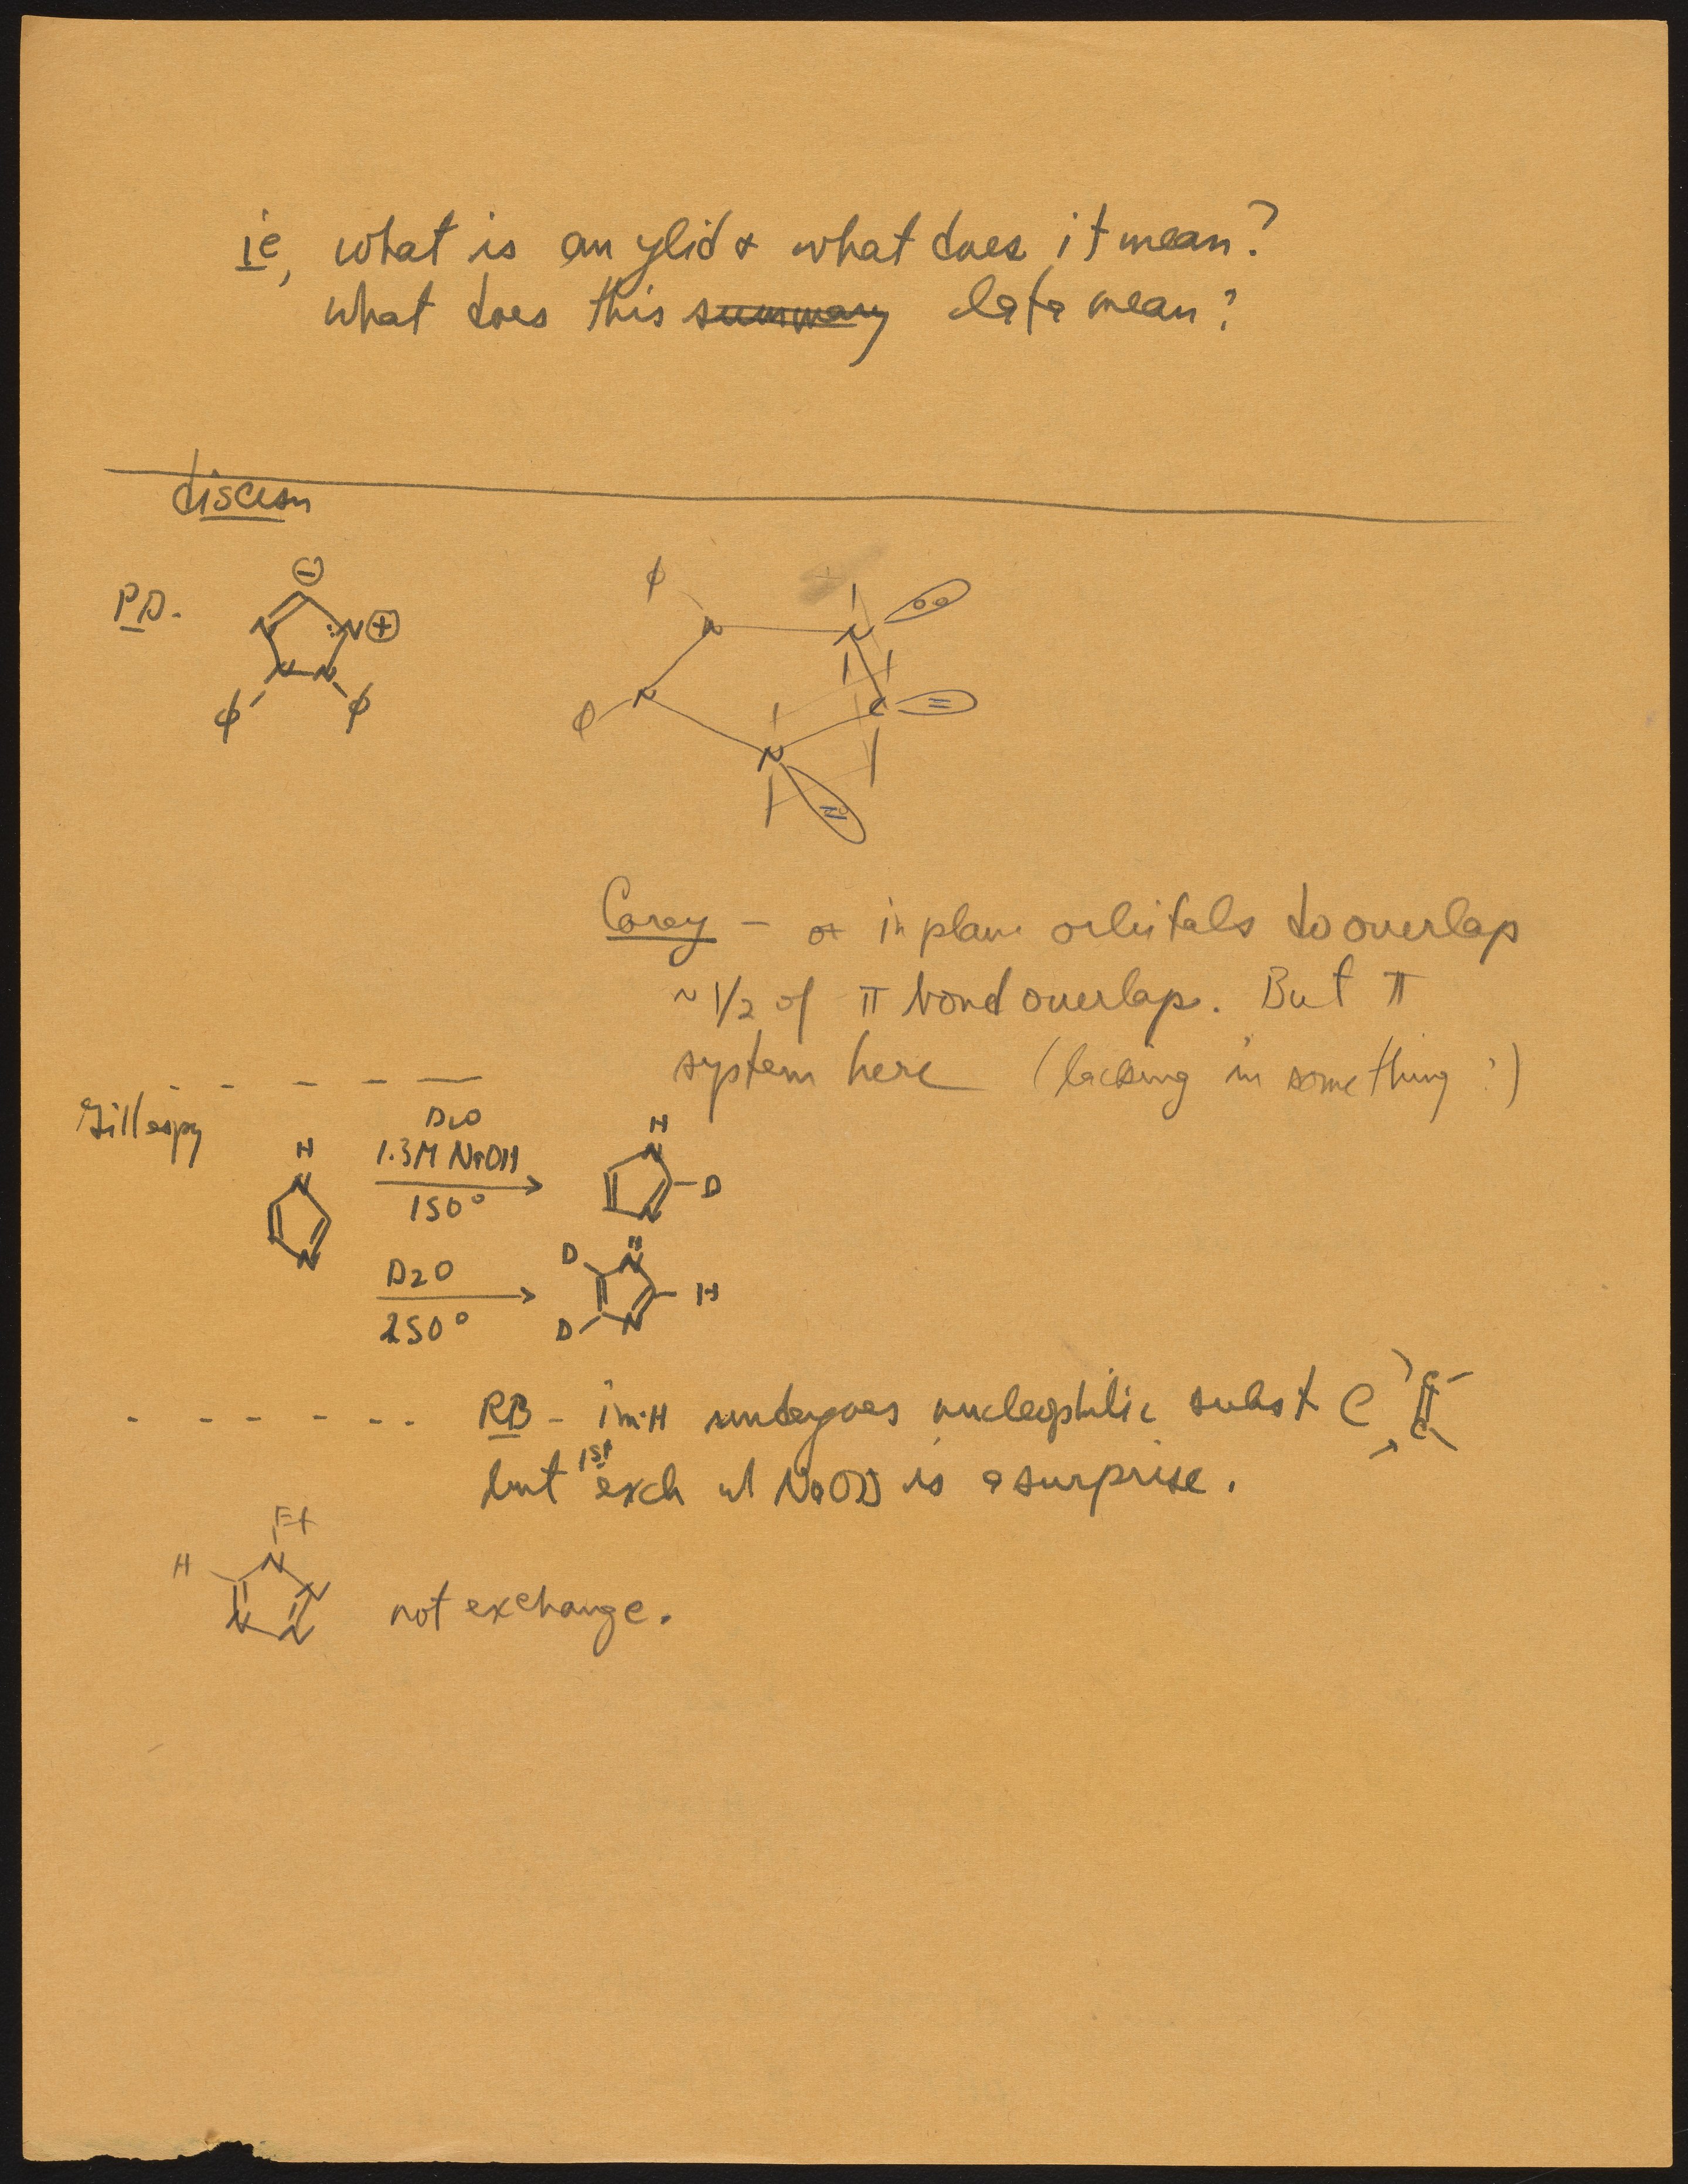 ie, what is an ylid & what does it mean?
what does this summary data mean?
discssn
P.D.
⊖
N :N⊕
N N
φ φ
φ
N N
φ N C
N
Corey – in plane orbitals do overlap
~ 1/2 of π bond overlap. But π
system here (lacking in something?)
Gillespy
H
N
N
D2O
1.3M NaOH
150°
H
N
D
N
D2O
250°
D
H
N
H
D
N
RB – im·H undergoes nucleophilic subst C C
C
but 1st exch w NaOD is a surprise.
Et
H N
N
N N
not exchange.